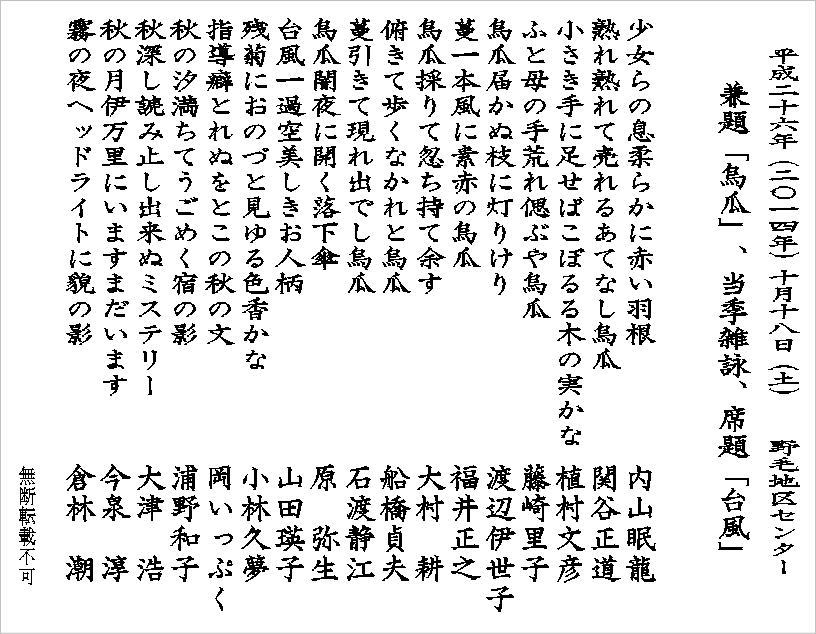 平成二十六年（二〇一四年）十月十八日（土）　野毛地区センター
兼題「烏瓜」、当季雑詠、席題「台風」
少女らの息柔らかに赤い羽根　内山眠龍
熟れ熟れて売れるあてなし烏瓜　関谷正道
小さき手に足せばこぼるる木の実かな　植村文彦
ふと母の手荒れ偲ぶや烏瓜　藤崎里子
烏瓜届かぬ枝に灯りけり　渡辺伊世子
蔓一本風に素赤の烏瓜　福井正之
烏瓜採りて忽ち持て余す　大村　耕
俯きて歩くなかれと烏瓜　船橋貞夫
蔓引きて現れ出でし烏瓜　石渡静江
烏瓜闇夜に開く落下傘　原　弥生
台風一過空美しきお人柄　山田瑛子
残菊におのづと見ゆる色香かな　小林久夢
指導癖とれぬをとこの秋の文　岡いっぷく
秋の汐満ちてうごめく宿の影　浦野和子
秋深し読み止し出来ぬミステリー　大津　浩
秋の月伊万里にいますまだいます　今泉　淳
霧の夜ヘッドライトに貌の影　倉林　潮
無断転載不可